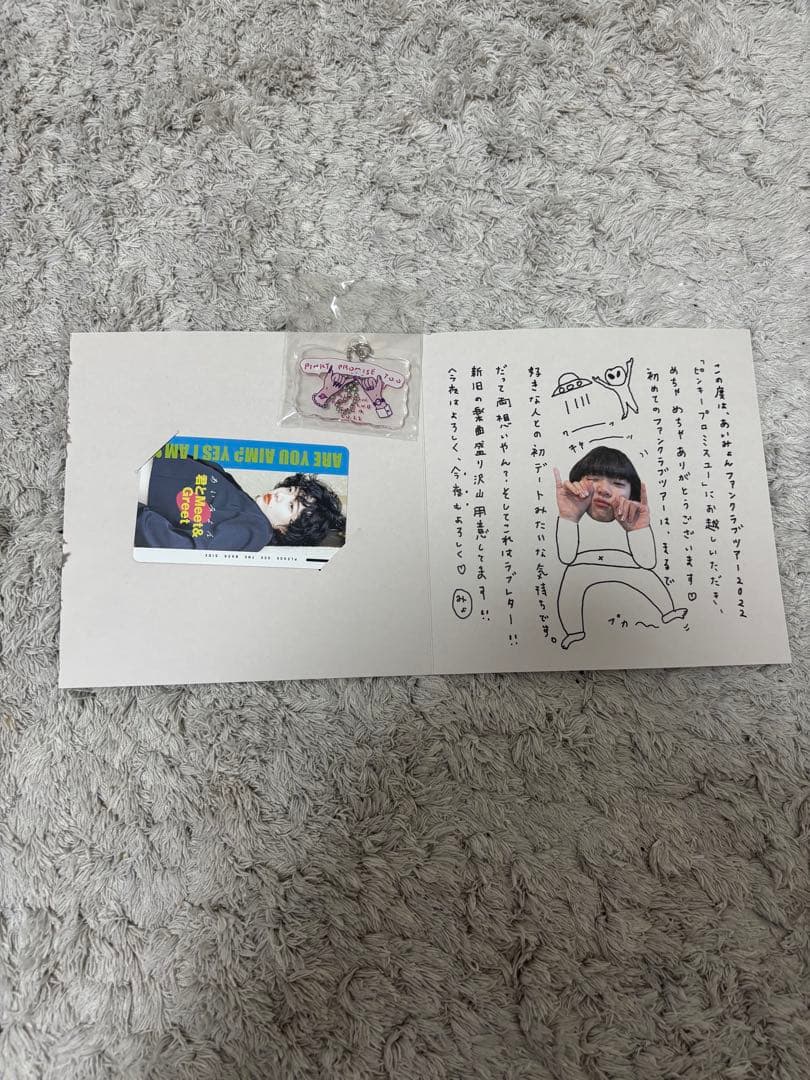 この度は、あいみょんファンクラブツアー2022
「ピンキープロミスユー」にお越しいただき、
めちゃめちゃありがとうございます♡
初めてのファンクラブツアーは、まるで
好きな人との初デートみたいな気持ちです。
だって両想いやん?そしてこれはラブレター!!
新旧の楽曲盛り沢山用意してます!!
今夜はよろしく、今夜もよろしく♡ みょ
ワーーッ
キャーーッ
プカ〜〜
PINKY PROMISE TOO
ARE YOU AIM? YES I AM!
あいみょん
君とMeet&
Greet
PLEASE SEE THE BACK SIDE